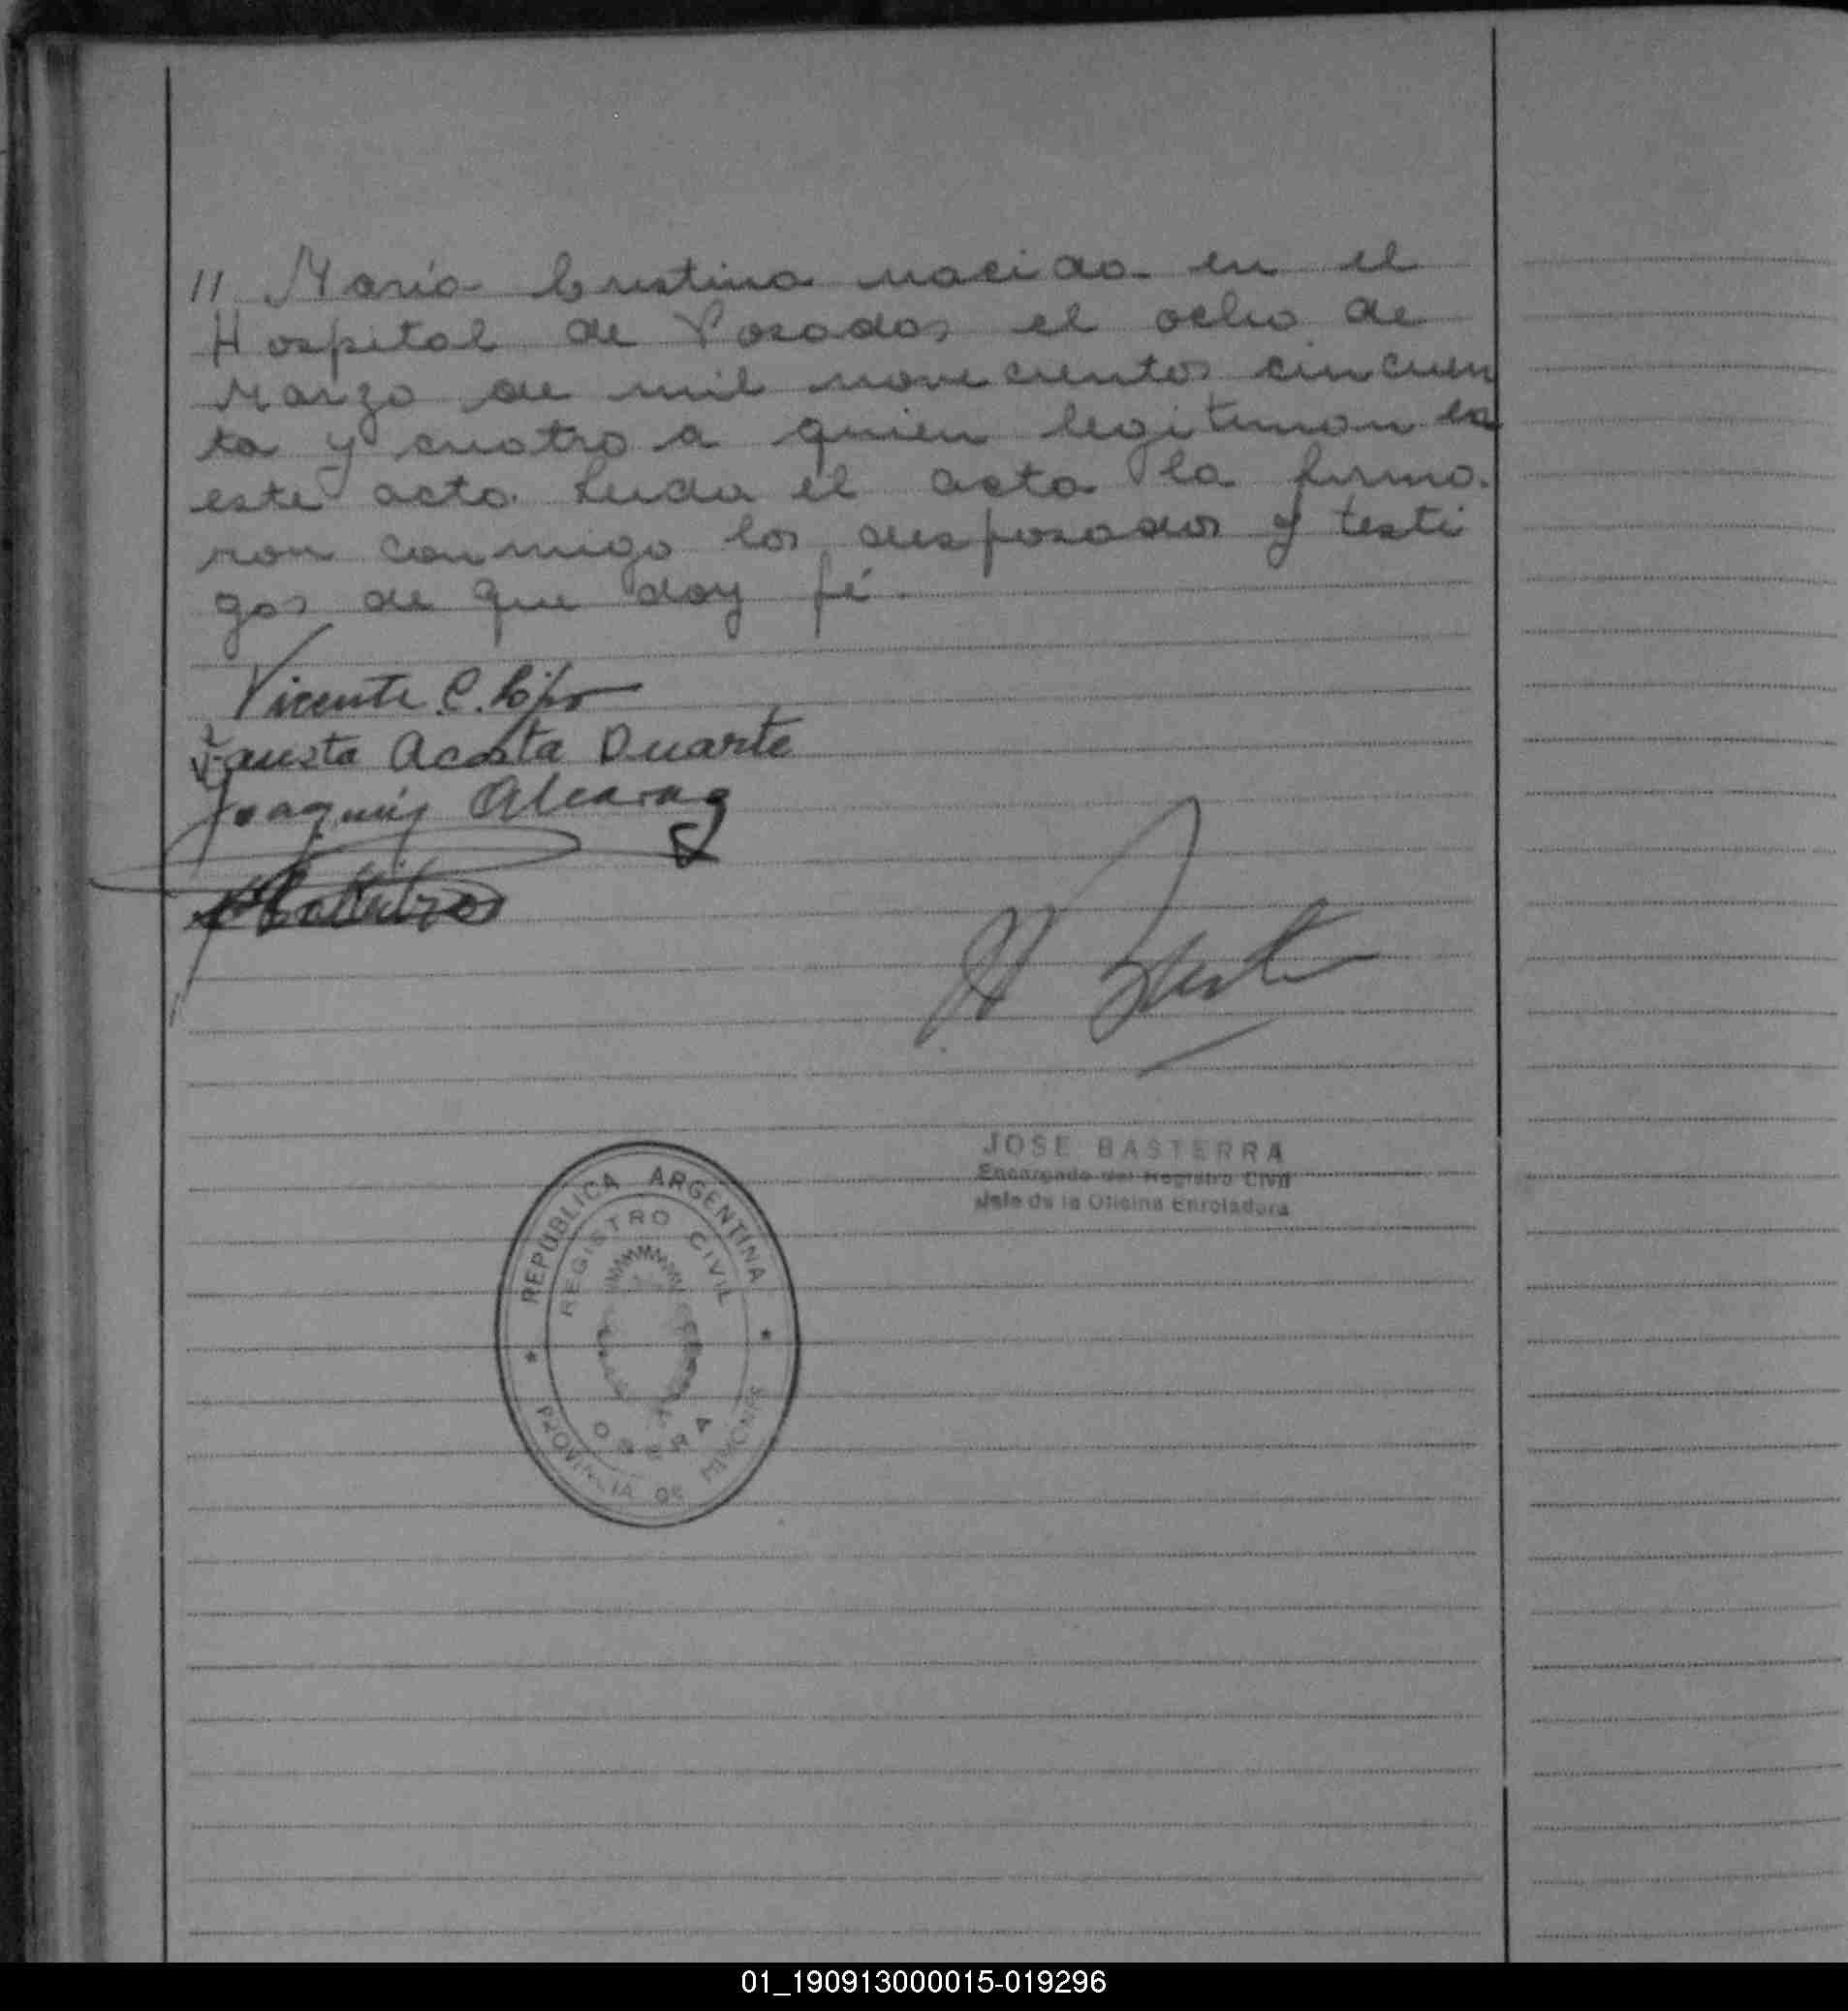 11 María Cristina nacida en el
Hospital de Posadas el ocho de
Marzo de mil novecientos cincuen
ta y cuatro a quien legitiman en
este acto. Leida el acta la firma.
ron conmigo los desposados y testi
gos de que doy fé.
Vicente C. López
Fausta Acosta Duarte
Joaquin Alcaraz
JOSE BASTERRA
Encargado del Registro Civil
Jefe de la Oficina Enroladora
REPUBLICA ARGENTINA
REGISTRO CIVIL
OBERA
PROVINCIA DE MISIONES
01_190913000015-019296